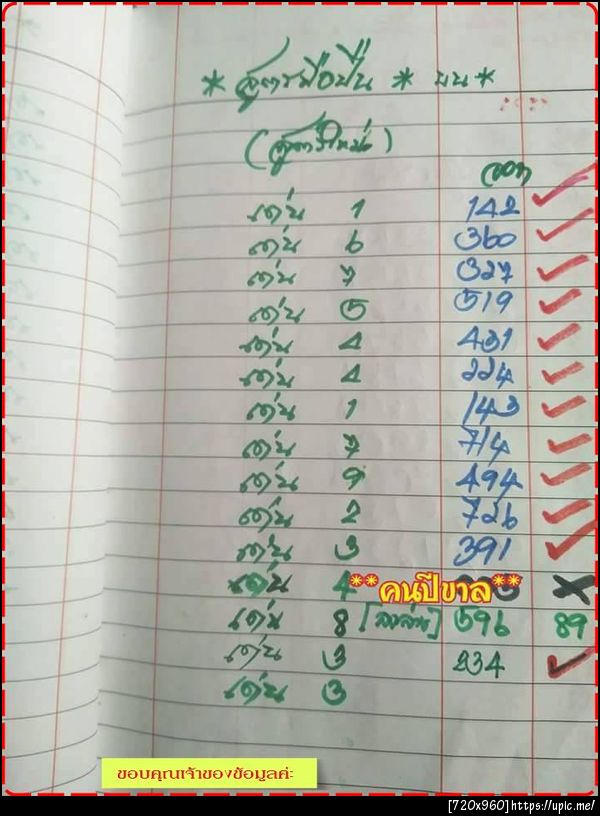 * สูตรมือปืน * บน *
(สูตรใหม่)
ออก
เด่น 1 142 ✓
เด่น 6 360 ✓
เด่น 7 327 ✓
เด่น 5 519 ✓
เด่น 4 431 ✓
เด่น 4 224 ✓
เด่น 1 143 ✓
เด่น 7 714 ✓
เด่น 9 494 ✓
เด่น 2 726 ✓
เด่น 3 391 ✓
เด่น 4 **คนปีขาล** X
เด่น 8 596 89
เด่น 3 234 ✓
เด่น 3
ขอบคุณเจ้าของข้อมูลค่ะ
[720x960]https://upic.me/